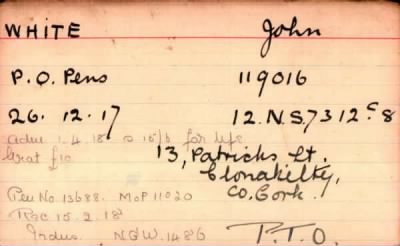 WHITE John
P.O. Pens 119016
26. 12. 17 12.N.S.7312 c 8
Adm 1.4.18 @ 15/3 for life
Grat £10
13, Patricks St.
Clonakilty,
Co. Cork.
Pen No. 13688. MoP 11020
Rec 15.2.18
Indus. NGW.1486 P.T.O